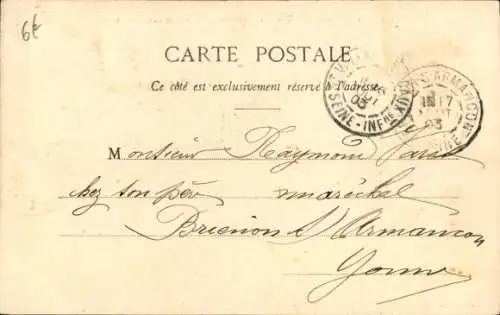 6€
CARTE POSTALE
Ce côté est exclusivement réservé à l'adresse
SEINE-INFRE
16
03
ARMANCON
17
03
Monsieur Raymond
chez son père maréchal
Brienon s/ Armancon
Yonne